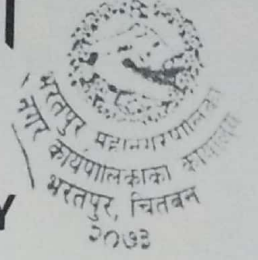 भरतपुर महानगरपालिका
नगर कार्यपालिकाको कार्यालय
भरतपुर, चितवन
२०७३
Y